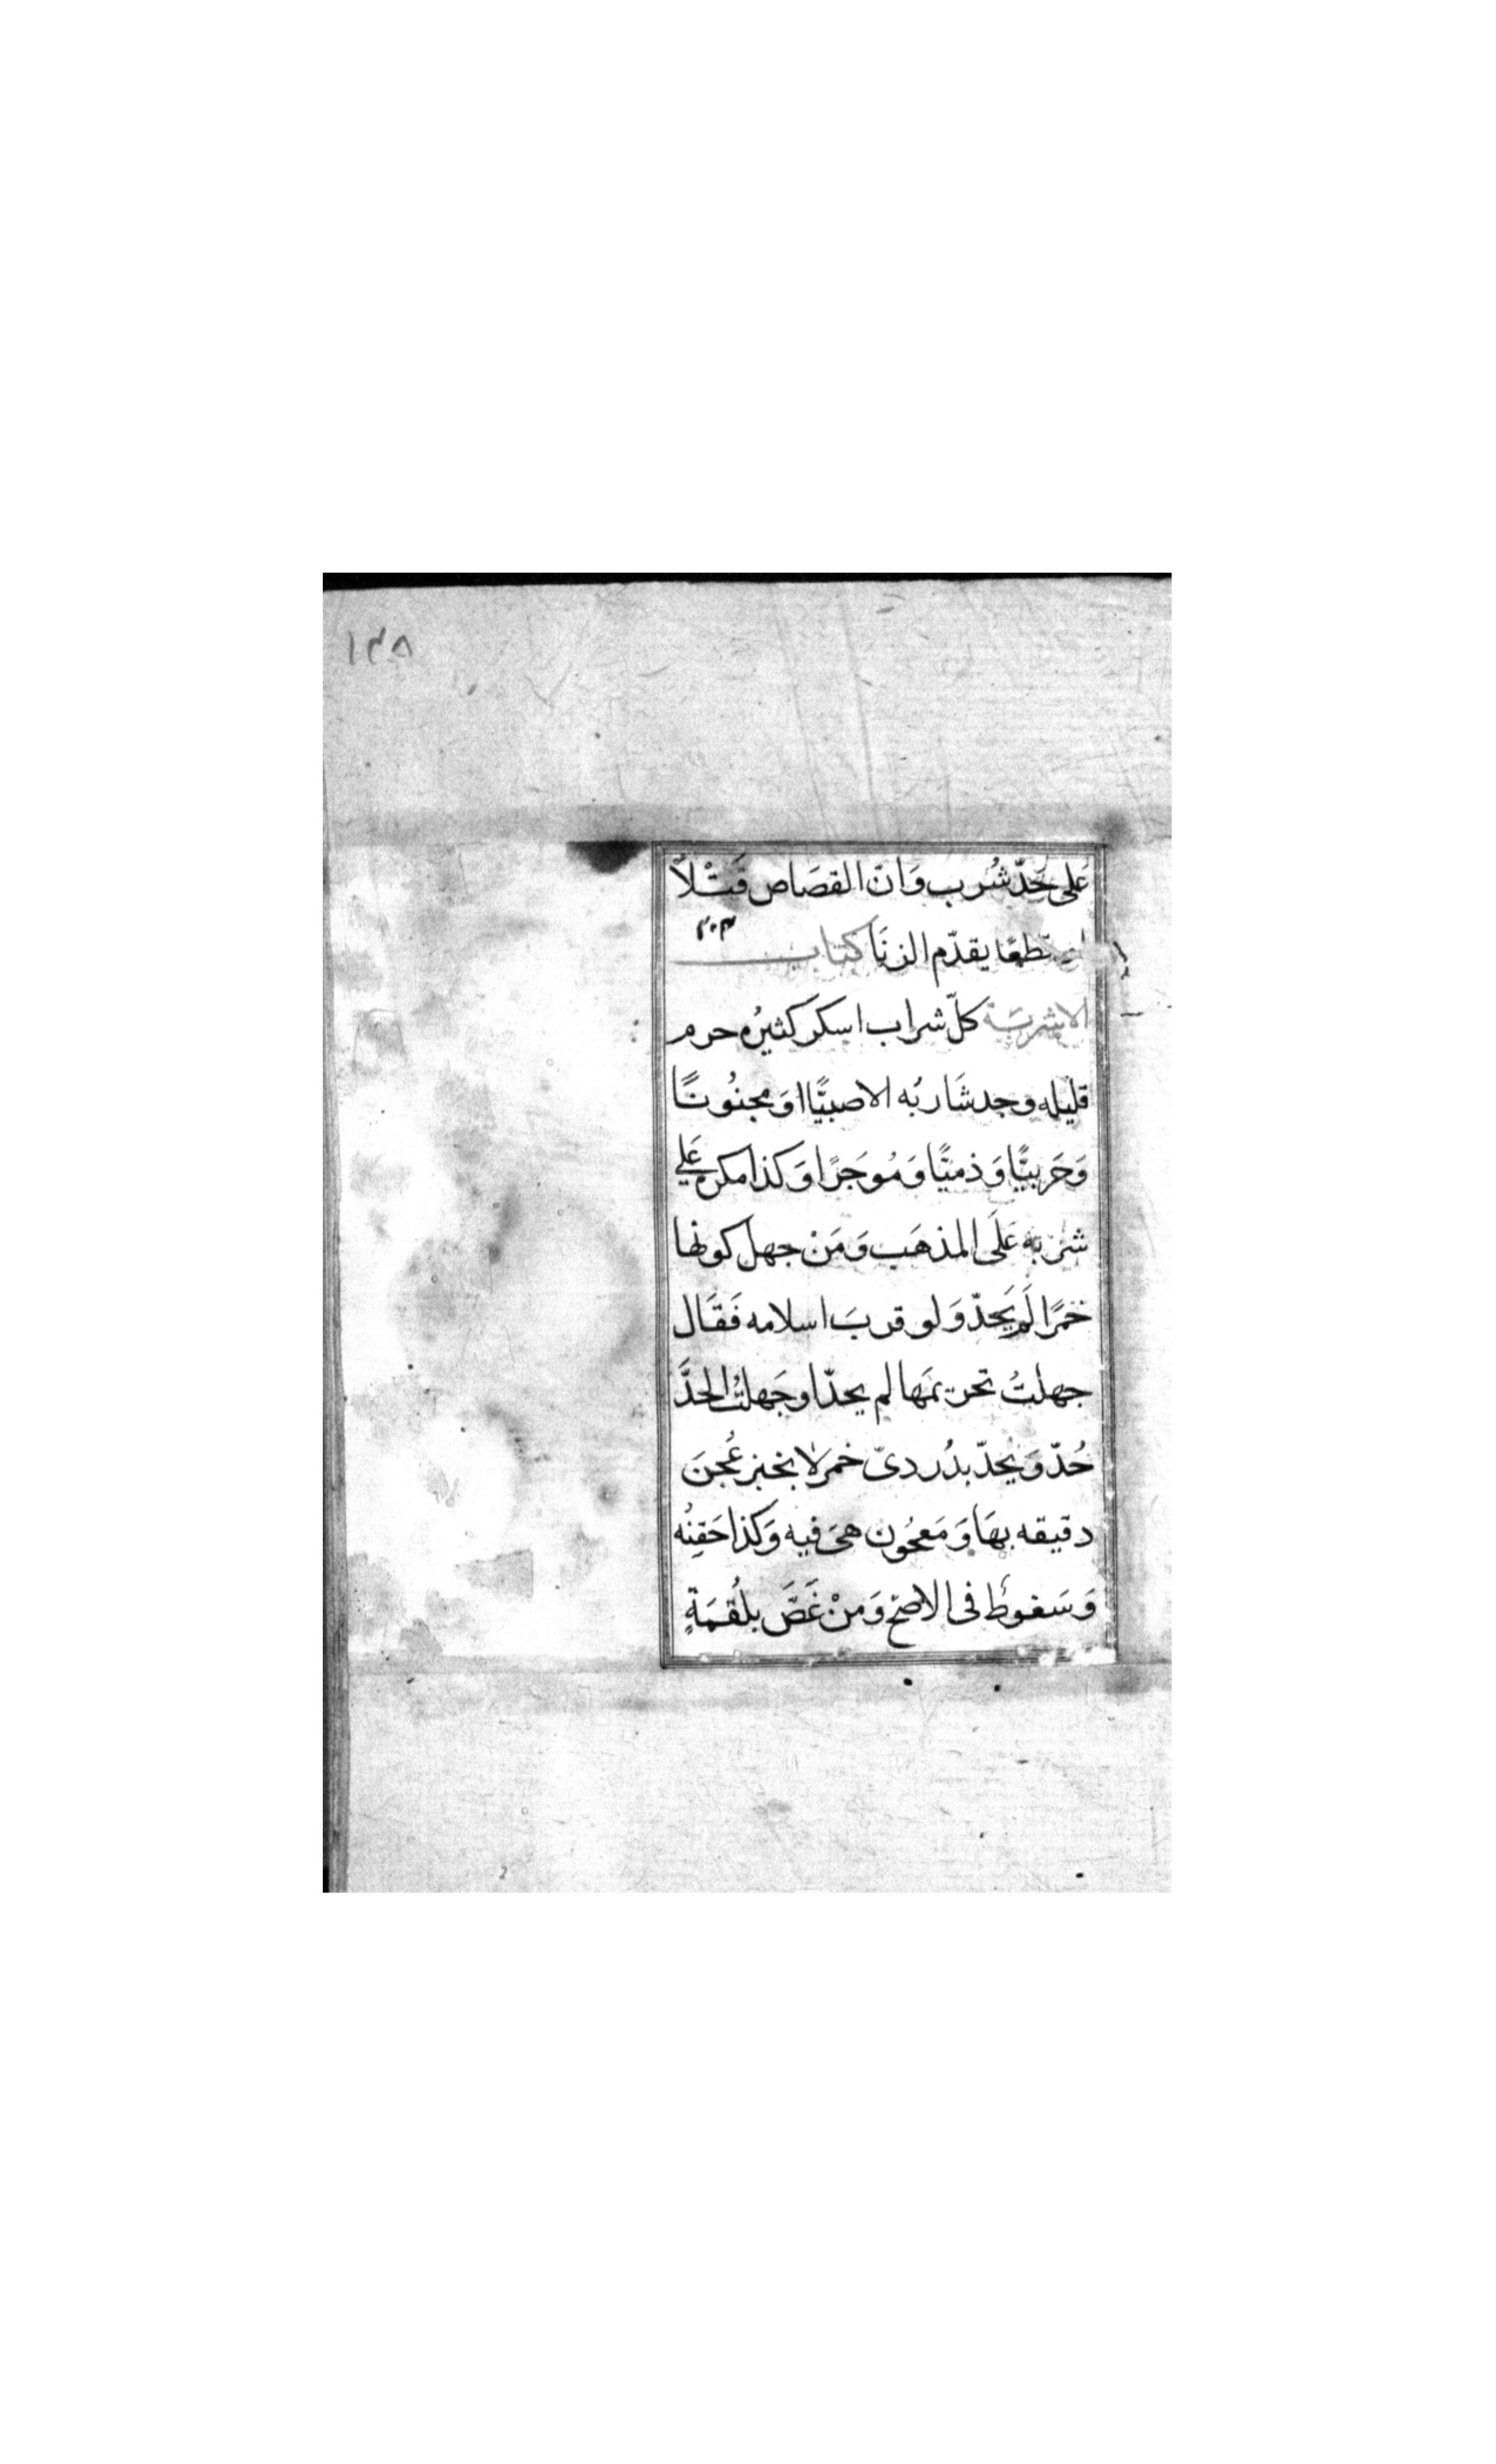 ١٣٨
عَلى حَدّ شُرب وَانّ القصَاص قَتْلاً
قطعًا يقدّم الزنَا كتاب
٢٠٣
الاشربَة كلّ شراب اسكَر كَثيرُه حرم
قليله وحد شَاربُه الا صبيًّا او مجنُونًا
وَحَربيًّا وَذميًّا وَمُوجَرًا وَكذا مكره عَلى
شربه عَلَى المذهَب وَمَنْ جهل كونها
خمرًا لَم يَحدّ وَلو قربَ اسلامه فَقَال
جهلتُ تحريمَها لم يحدّ او جَهلتُ الحدَّ
حُدّ وَيُحدّ بدُردىّ خمر لا بخبز عُجنَ
دقيقه بهَا وَمَعجُون هىَ فيه وَكذا حَقنُه
وَسَعُوط فى الاصحّ وَمنْ غَصَّ بلُقمَةٍ